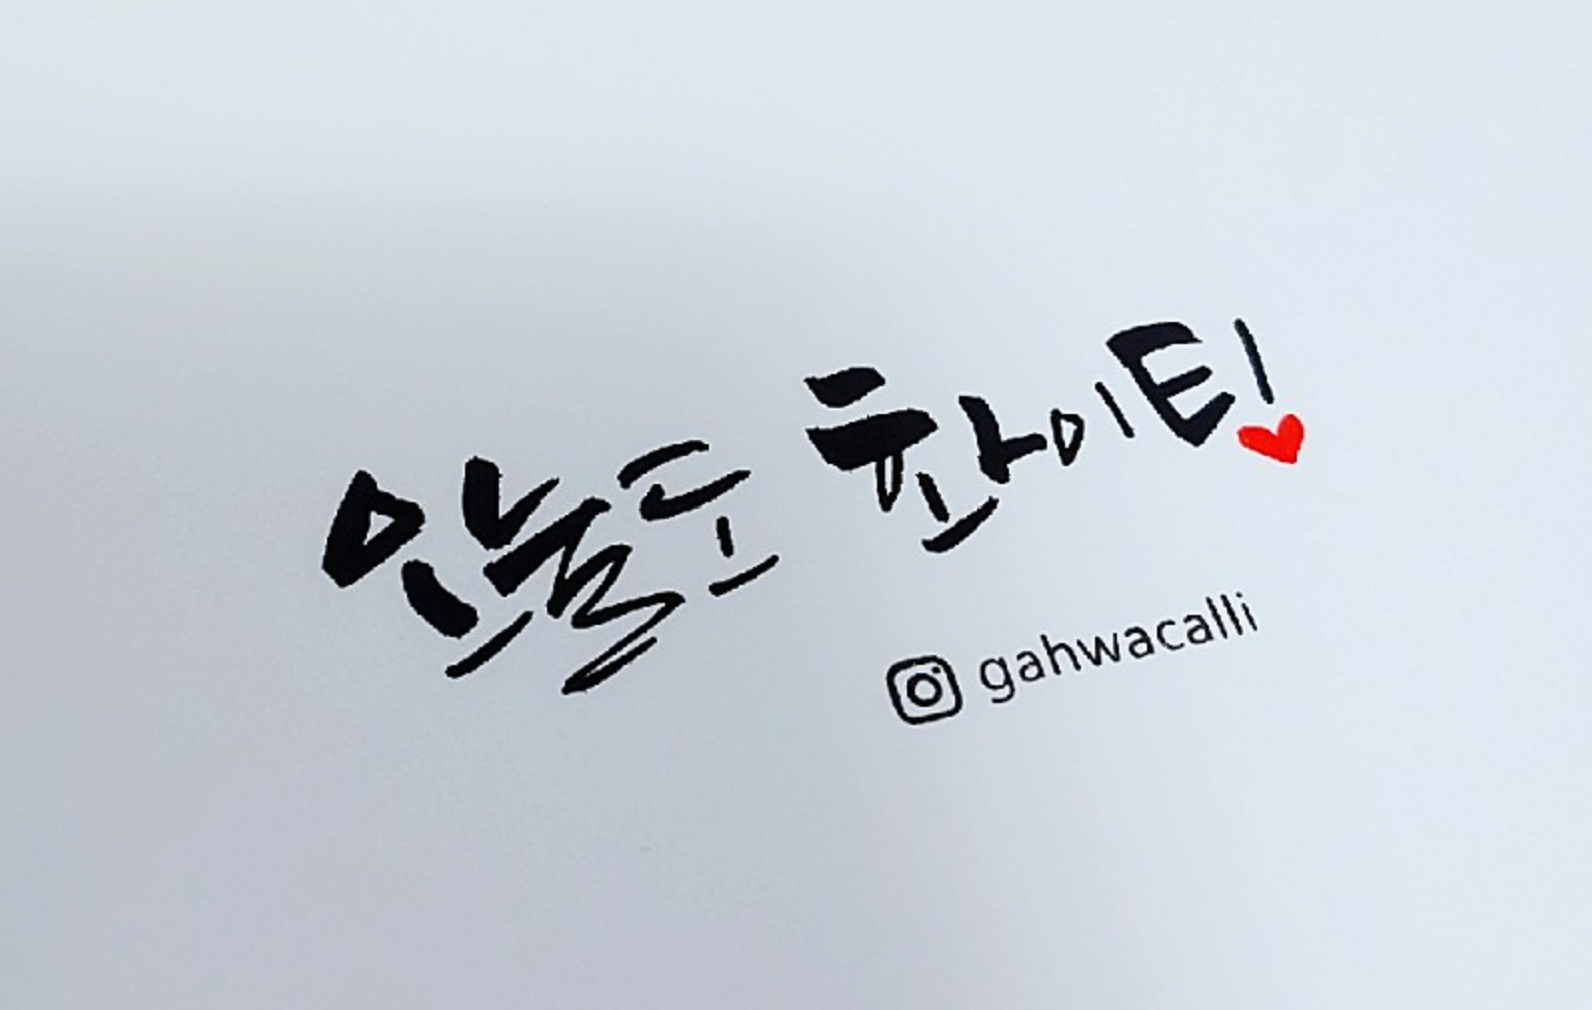 오늘도 화이팅!
gahwacalli